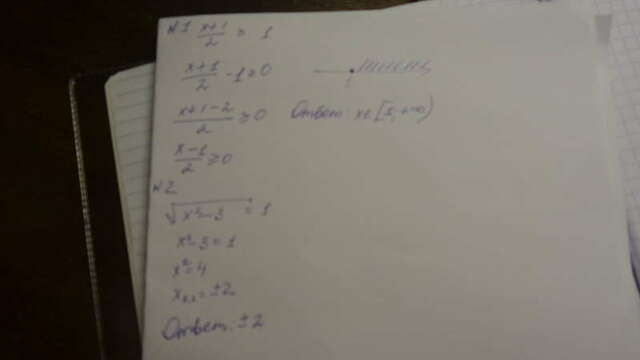 N1 x+1/2 ≥ 1
x+1/2 - 1 ≥ 0
x+1-2/2 ≥ 0
x-1/2 ≥ 0
Ответ: x∈[1;+∞)
N2
√x²-3 = 1
x²-3=1
x²=4
x₁,₂=±2
Ответ: ±2